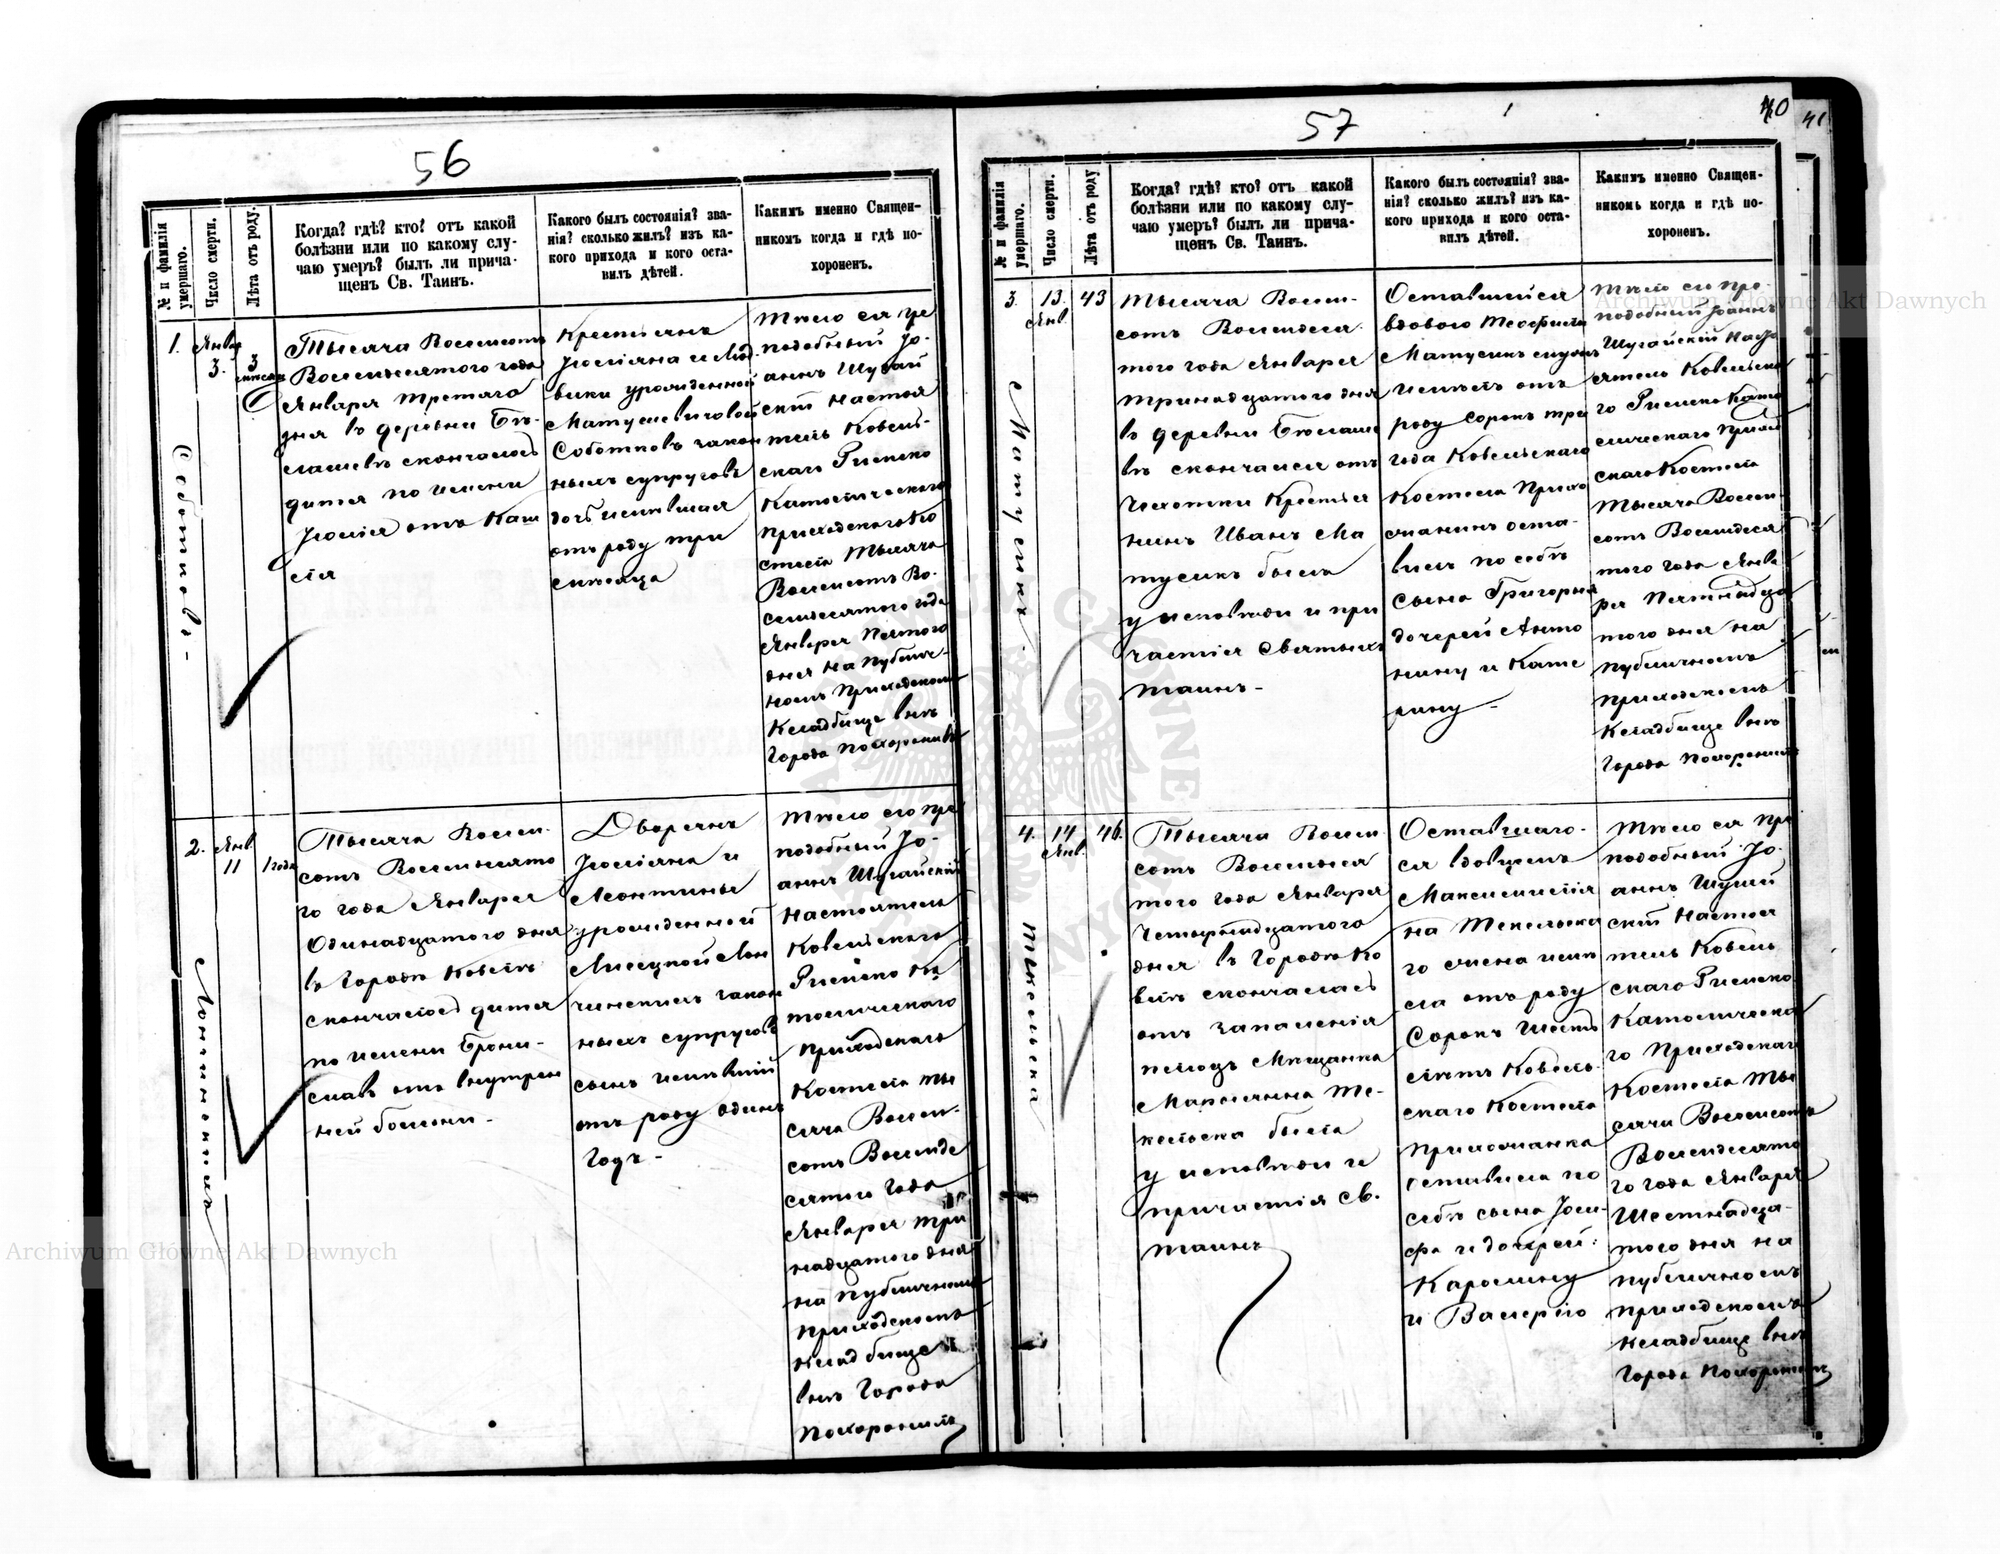 56
№ и фамилія умершаго.
Число смерти.
Лѣта отъ роду.
Когда? гдѣ? кто? отъ какой
болѣзни или по какому слу-
чаю умеръ? былъ ли прича-
щенъ Св. Таинъ.
Какого былъ состоянія? зва-
нія? сколько жилъ? изъ ка-
кого прихода и кого оста-
вилъ дѣтей.
Какимъ именно Священ-
никомъ когда и гдѣ по-
хороненъ.
1.
Января
3.
3
мѣсяца
Тысяча Восемсотъ
Восемьдесятого года
Января третяго
дня въ деревни
скончалось
дитя по имени
Юлія отъ Каш
ля
Крестьянъ
Юліяна и Люд
вики урожденной
Матусевичовой
Соботковъ закон
ныхъ супруговъ
дочь имѣвшая
отъ роду три
мѣсяца
Тѣло ея пре
подобный Іо-
аннъ Шугай
скій Настоя
тель Ковель-
скаго Римско
Католическаго
Приходскаго Ко
стела Тысяча
Восемсотъ Во-
семьдесятого года
Января Пятого
дня на публич-
номъ Приходскомъ
Кладбище внѣ
Города похоронилъ
2.
Янв
11
1 года
Тысяча Восем-
сотъ Восемьдесято
го года Января
Одинадцатого дня
въ Городѣ Ковелѣ
скончалось дитя
по имени Брони-
славъ отъ внутрен
ней болезни -
Дворянъ
Юліяна и
Леонтины
урожденной
закон
ныхъ супруговъ
сынъ имѣвшій
отъ роду одинъ
годъ -
Тѣло его пре
подобный Іо-
аннъ Шугайскій
Настоятель
Ковельскаго
Римско Ка
толическаго
Приходскаго
Костела ты
сяча Восем-
сотъ Восемьде
сятого года
Января три
надцатого дня
на публичномъ
Приходскомъ
кладбище
внѣ Города
похоронилъ
57
40
41
№ и фамилія умершаго.
Число смерти.
Лѣта отъ роду
Когда? гдѣ? кто? отъ какой
болѣзни или по какому слу-
чаю умеръ? былъ ли прича-
щенъ Св. Таинъ.
Какого былъ состоянія? зва-
нія? сколько жилъ? изъ ка-
кого прихода и кого оста-
вилъ дѣтей.
Какимъ именно Священ-
никомъ когда и гдѣ по-
хороненъ.
3.
13.
Янв.
43
Матусикъ.
Тысяча Восем-
сотъ Восемьдеся
того года Января
тринадцатого дня
въ деревни
скончался отъ
Чахотки Крестья
нинъ Иванъ Ма
тусикъ былъ
у исповѣди и при
частія Святыхъ
таинъ -
Оставшейся
вдовою Теофила
Матусикъ мужъ
имѣлъ отъ
роду сорокъ три
года Ковельскаго
Костела Прихо
жанинъ оста-
вилъ по себѣ
сына Григорія
дочерей Анто
нину и Кате
рину -
Тѣло его пре-
подобный Іоаннъ
Шугайскій Насто
ятель Ковельска
го Римско Като
лическаго Приход
скаго Костела
Тысяча Восем-
сотъ Восемьдеся
того года Янва
ря Пятнадца
того дня на
публичномъ
приходскомъ
Кладбище внѣ
Города похоронилъ
4.
14
Янв.
46.
Текельска
Тысяча Восем
сотъ Восемьдеся
того года Января
Четырнадцатого
дня въ Городѣ Ко
велѣ скончалась
отъ запаленія
Мещанка
Маріянна Те-
кельска была
у исповѣди и
причастія Св.
таинъ
Оставшаго-
ся вдовцемъ
Максимилія
на Текельска
го жена имѣ
ла отъ роду
Сорокъ шесть
лѣтъ Ковель-
скаго Костела
прихожанка
оставила по
себѣ сына Іоси-
фа и дочерей:
Каролину
и Валерію
Тѣло ея пре
подобный Іо-
аннъ Шугай
скій Настоя
тель Ковель
скаго Римско
Католическа
го Приходскаго
Костела Ты
сячи Восемсотъ
Восемьдесято
го года Января
Шестнадца-
того дня на
публичномъ
приходскомъ
кладбище внѣ
города похоронилъ
Archiwum Główne Akt Dawnych
Archiwum Główne Akt Dawnych